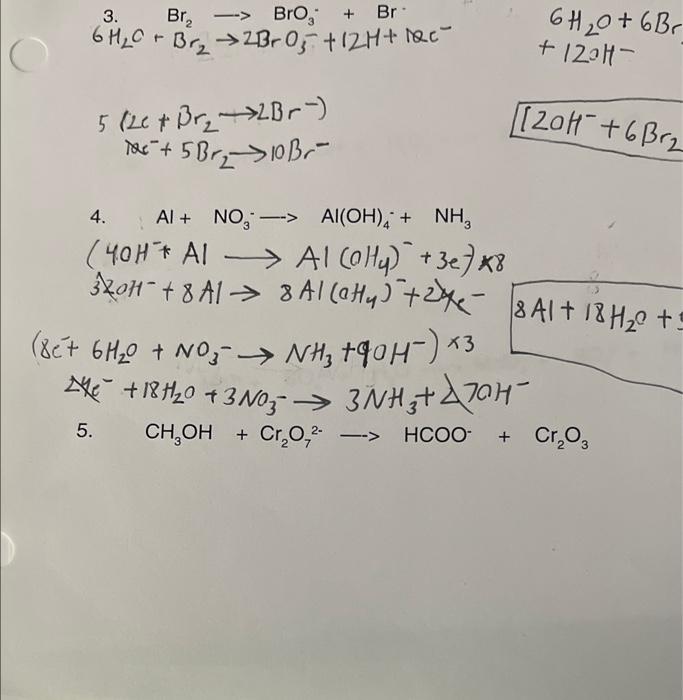 3. Br₂ —> BrO₃⁻ + Br⁻
6H₂O + Br₂ → 2BrO₃⁻ + 12H + 10e⁻
6H₂O + 6Br
+ 12OH⁻
5 (2e + Br₂ → 2Br⁻)
10e⁻ + 5Br₂ → 10Br⁻
12OH⁻ + 6Br₂
4. Al + NO₃⁻ —> Al(OH)₄⁻ + NH₃
(4OH⁻ + Al → Al(OH₄)⁻ + 3e⁻) ×8
32OH⁻ + 8Al → 8Al(OH₄)⁻ + 24e⁻
8Al + 18H₂O +
(8e⁻ + 6H₂O + NO₃⁻ → NH₃ + 9OH⁻) ×3
24e⁻ + 18H₂O + 3NO₃⁻ → 3NH₃ + 27OH⁻
5. CH₃OH + Cr₂O₇²⁻ —> HCOO⁻ + Cr₂O₃